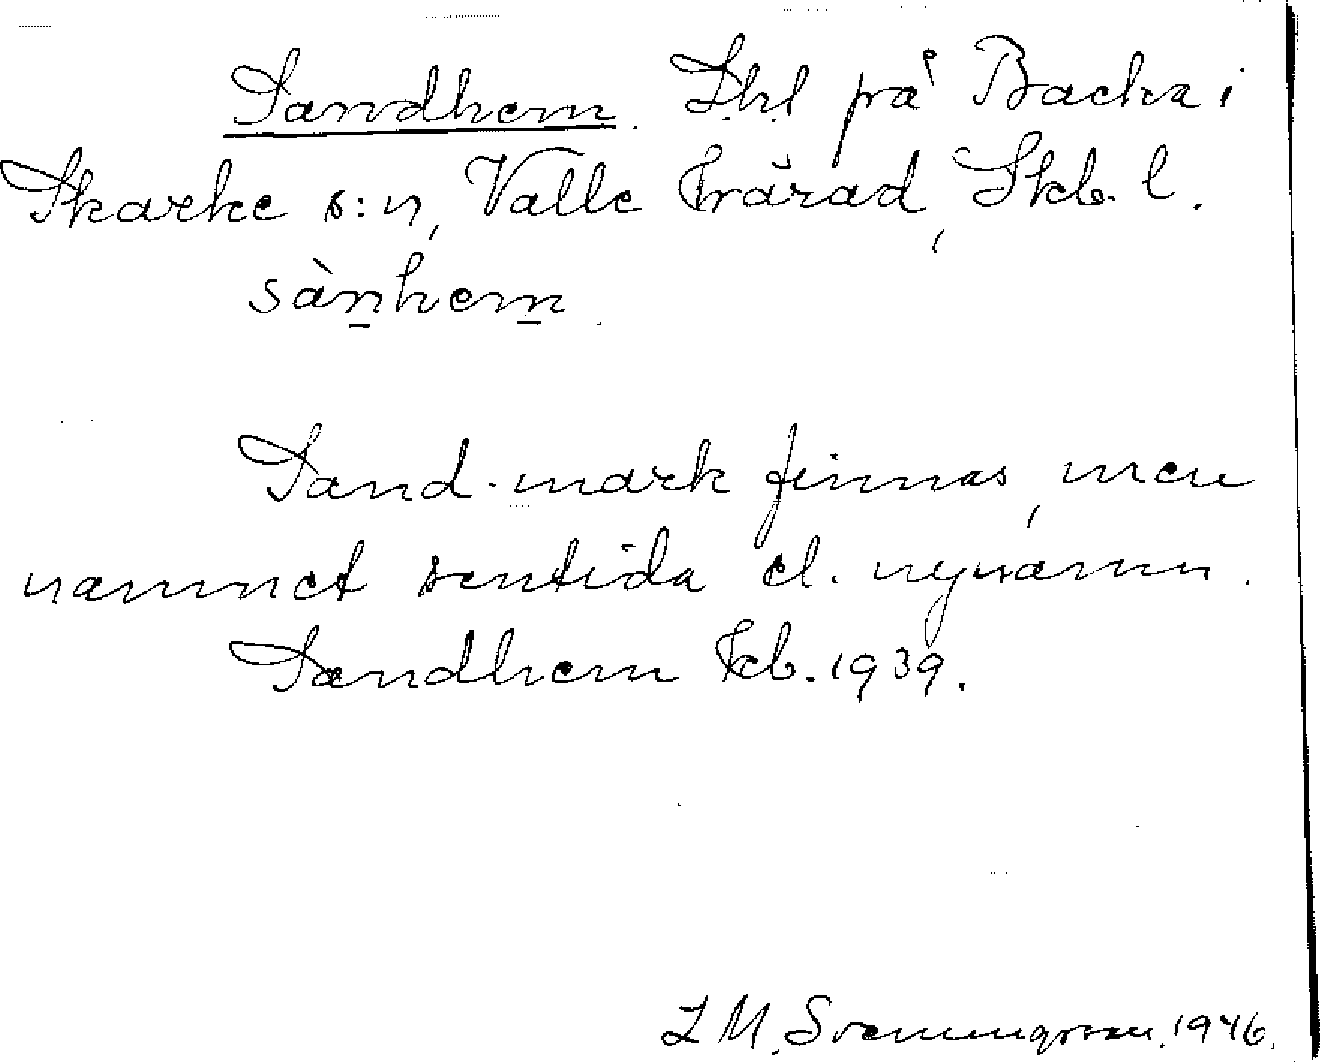 Sandhem. Shl på Backa i
Skarke s:n, Valle härad, Skb. l.
sànhem.
Sand-mark finnas, men
namnet sentida el. nynamn.
Sandhem Feb. 1939.
L M. Svenungsson. 1946.